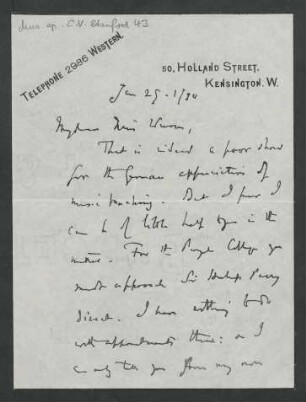 Mus. ep. C. V. Stanford 43
TELEPHONE 2986 WESTERN.
50, HOLLAND STREET,
KENSINGTON. W.
Jan 29.
My dear Miss
That is indeed a poor show
for the German appreciation of
music teaching. But I fear I
can be of little help to you in the
matter. For the Royal College you
must approach Sir Hubert Parry
direct. I have nothing to do
with appointments there: as I
can only tell you from my own